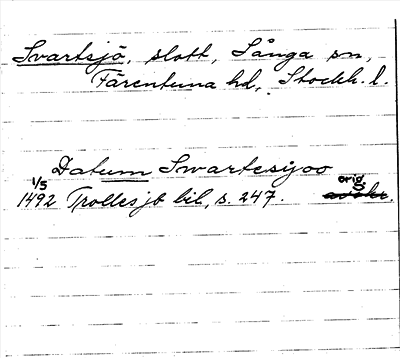 Svartsjö, slott, Sånga sn,
Färentuna hd, Stockh. l.
Datum Swartesijoo
1/5 orig.
1492 Trolles jb bil, s. 247. avskr.